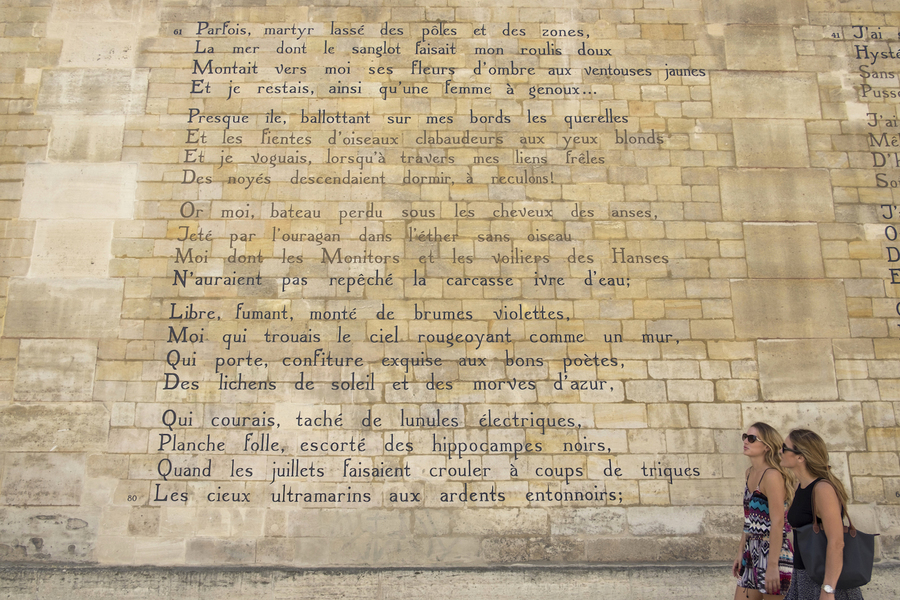 61 Parfois, martyr lassé des pôles et des zones,
La mer dont le sanglot faisait mon roulis doux
Montait vers moi ses fleurs d'ombre aux ventouses jaunes
Et je restais, ainsi qu'une femme à genoux...
Presque île, ballottant sur mes bords les querelles
Et les fientes d'oiseaux clabaudeurs aux yeux blonds
Et je voguais, lorsqu'à travers mes liens frêles
Des noyés descendaient dormir, à reculons!
Or moi, bateau perdu sous les cheveux des anses,
Jeté par l'ouragan dans l'éther sans oiseau
Moi dont les Monitors et les voiliers des Hanses
N'auraient pas repêché la carcasse ivre d'eau;
Libre, fumant, monté de brumes violettes,
Moi qui trouais le ciel rougeoyant comme un mur,
Qui porte, confiture exquise aux bons poètes,
Des lichens de soleil et des morves d'azur,
Qui courais, taché de lunules électriques,
Planche folle, escorté des hippocampes noirs,
Quand les juillets faisaient crouler à coups de triques
80 Les cieux ultramarins aux ardents entonnoirs;
41 J'ai
Sans
J'ai